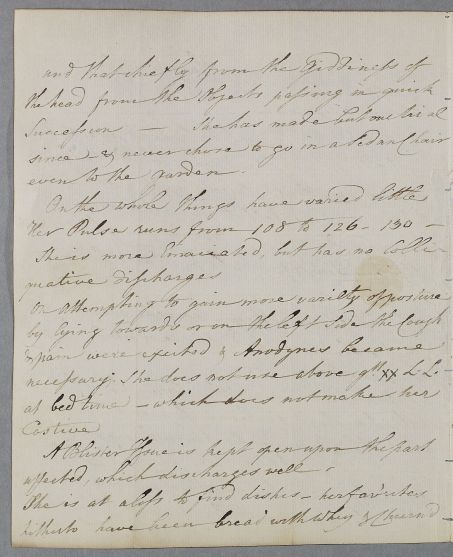 and that chiefly from the Giddiness of
the head from the Objects passing in quick
Succession — She has made but one trial
since & never chose to go in a Sedan Chair
even to the Garden.
On the whole things have varied little
Her Pulse runs from 108 to 126 - 130 -
She is more Emaciated, but has no Colli-
quative discharges
On attempting to gain more variety of posture
by lying towards or on the left Side the Cough
& pain were excited & Anodynes became
necessary. She does not use above gtt XX L. L. -
at bed time - which does not make her
Costive
A Blister Issue is kept open upon the part
affected, which discharges well.
She is at a loss to find dishes - her favorites
hitherto have been bread with Whey & Churn'd